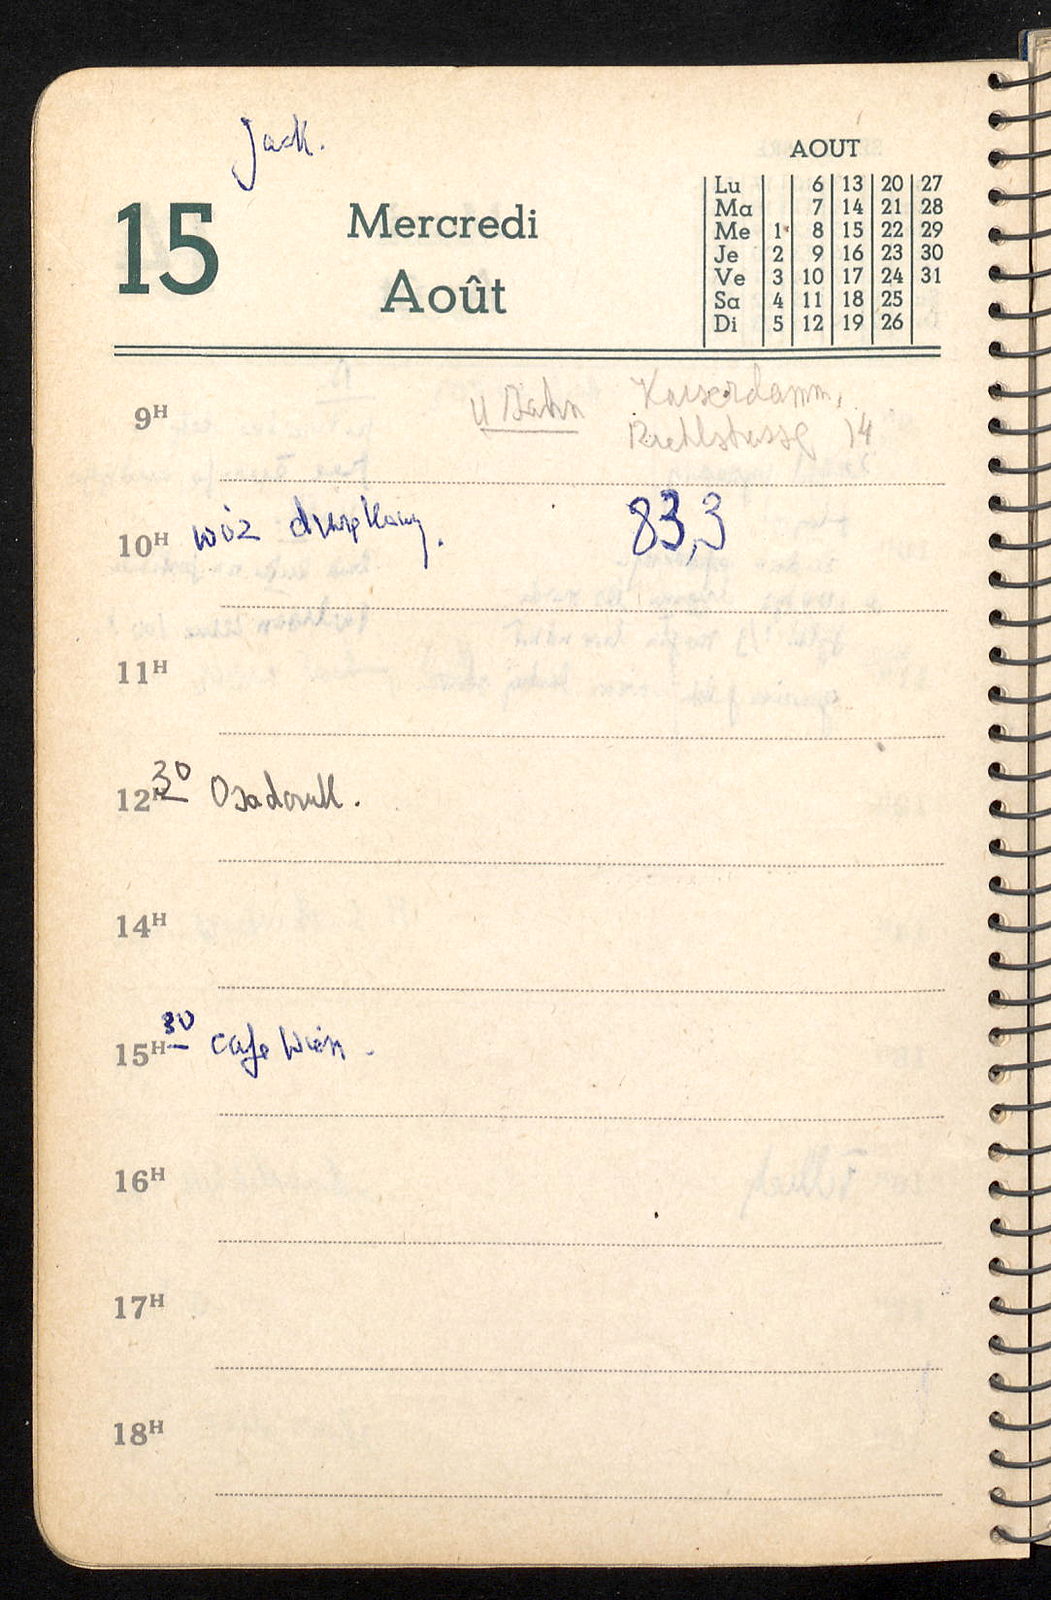 Jack.
15 Mercredi
Août
AOUT
Lu 6 13 20 27
Ma 7 14 21 28
Me 1 8 15 22 29
Je 2 9 16 23 30
Ve 3 10 17 24 31
Sa 4 11 18 25
Di 5 12 19 26
9H U Bahn Kaiserdamm,
14
10H wóz 83,3
11H
12H 30
14H
15H 30 cafe Wien
16H
17H
18H